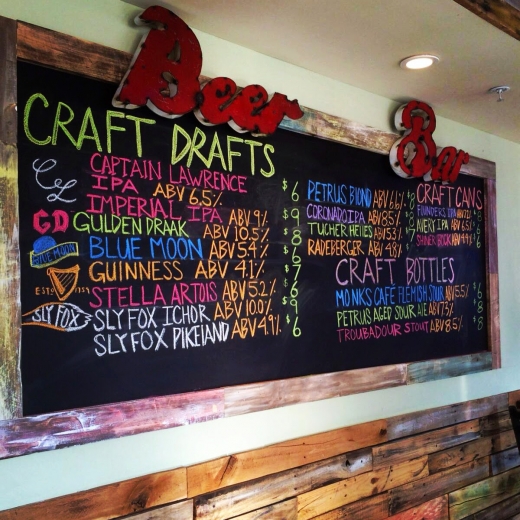 Beer
Bar
CRAFT DRAFTS
CL
CAPTAIN LAWRENCE
IPA ABV 6.5% $6
IMPERIAL IPA ABV 9% $9
GD GULDEN DRAAK ABV 10.5% $8
BLUE MOON BLUE MOON ABV 5.4% $6
GUINNESS ABV 4.1% $7
STELLA ARTOIS ABV 5.2% $6
SLY FOX SLY FOX ICHOR ABV 10.0% $9
SLY FOX PIKELAND ABV 4.9% $6
PETRUS BLOND ABV 6.6%
CORONADO IPA ABV 8.5%
TUCHER HELLES ABV 5.3%
RADEBERGER ABV 4.8%
CRAFT CANS
FOUNDERS IPA
AVERY IPA
SHINER BOCK
CRAFT BOTTLES
MONKS CAFÉ FLEMISH SOUR ABV 5.5% $6
PETRUS AGED SOUR ALE ABV 7.3% $8
TROUBADOUR STOUT ABV 8.5% $8